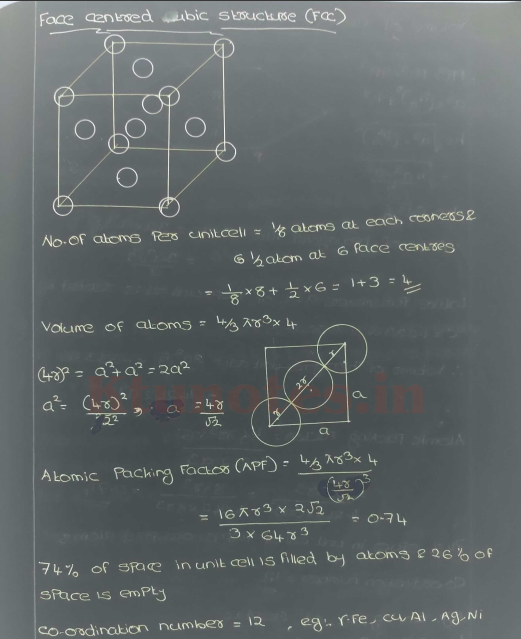 Face centred cubic structure (Fcc)
No. of atoms Per unitcell = 1/8 atoms at each corners &
6 1/2 atom at 6 face centres
= 1/8 × 8 + 1/2 × 6 = 1+3 = 4
Volume of atoms = 4/3 πr³ × 4
(4r)² = a² + a² = 2a²
a² = (4r)²/2², a = 4r/√2
r
2r
r
a
a
Ktunotes.in
Atomic Packing Factor (APF) = 4/3 πr³ × 4 / (4r/√2)³
= 16πr³ × 2√2 / 3 × 64r³ = 0.74
74% of space in unit cell is filled by atoms & 26% of
space is empty
co-ordination number = 12, eg:- r-Fe, cu, Al, Ag, Ni